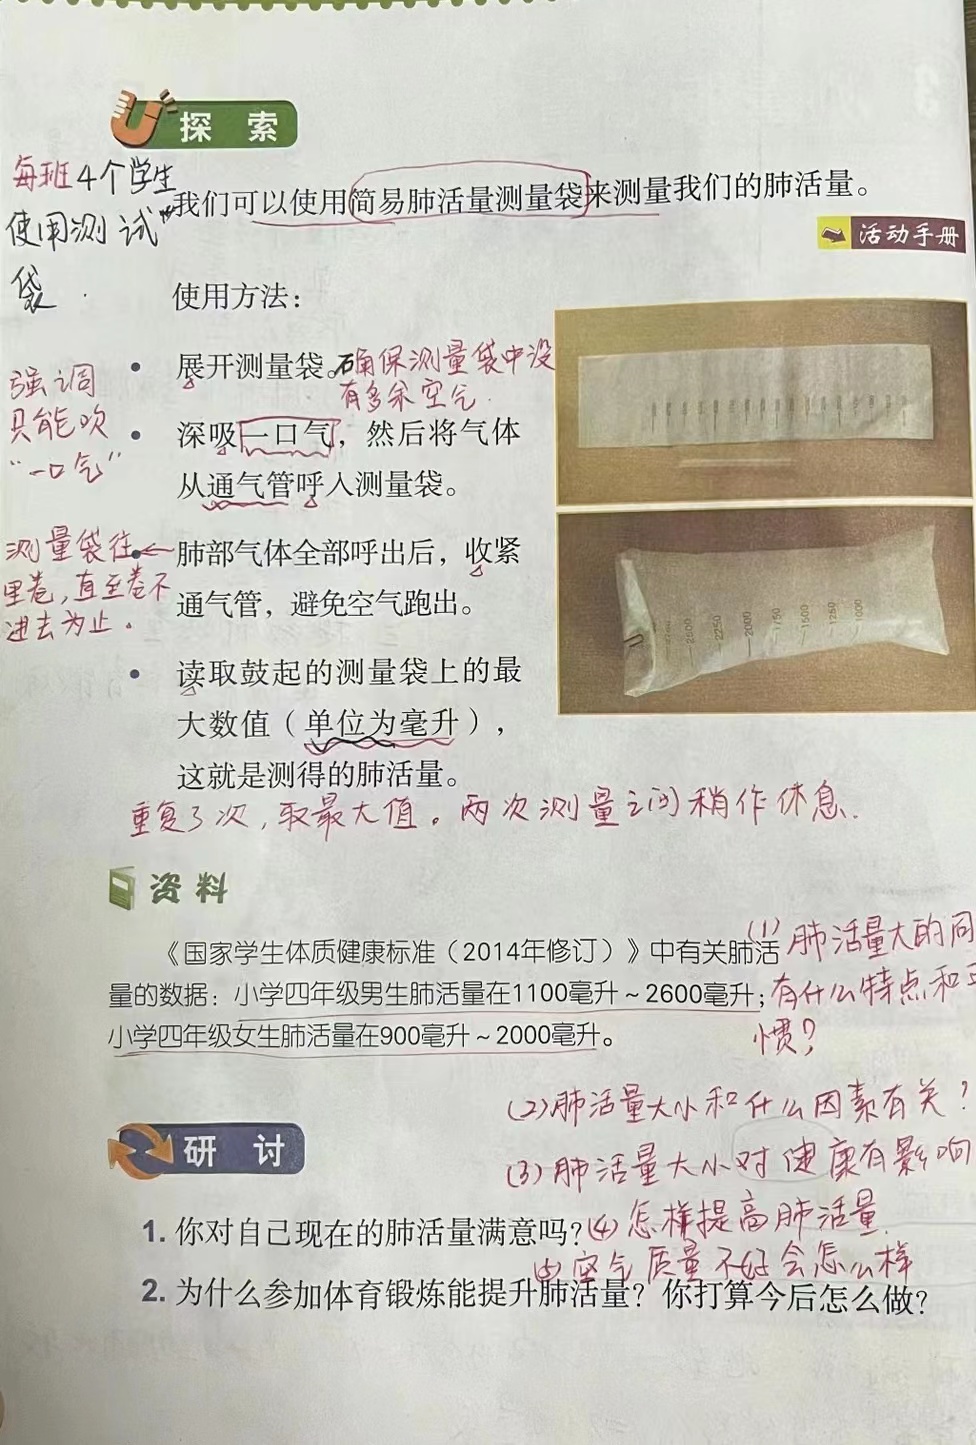 探 索
每班4个学生
使用测试
袋
我们可以使用简易肺活量测量袋来测量我们的肺活量。
活动手册
使用方法：
展开测量袋。确保测量袋中没
有多余空气.
强调
只能吹
“一口气”
深吸一口气，然后将气体
从通气管呼入测量袋。
测量袋往
里卷，直至卷不
进去为止。
肺部气体全部呼出后，收紧
通气管，避免空气跑出。
2500
2250
2000
1750
1500
1250
1000
读取鼓起的测量袋上的最
大数值（单位为毫升），
这就是测得的肺活量。
重复3次，取最大值。两次测量之间稍作休息.
资料
《国家学生体质健康标准（2014年修订）》中有关肺活
量的数据：小学四年级男生肺活量在1100毫升～2600毫升；
小学四年级女生肺活量在900毫升～2000毫升。
(1)肺活量大的同
有什么特点和
惯？
(2)肺活量大小和什么因素有关？
(3)肺活量大小对健康有影响
研 讨
1. 你对自己现在的肺活量满意吗？
(4)怎样提高肺活量.
(5)空气质量不好会怎么样
2. 为什么参加体育锻炼能提升肺活量？你打算今后怎么做？